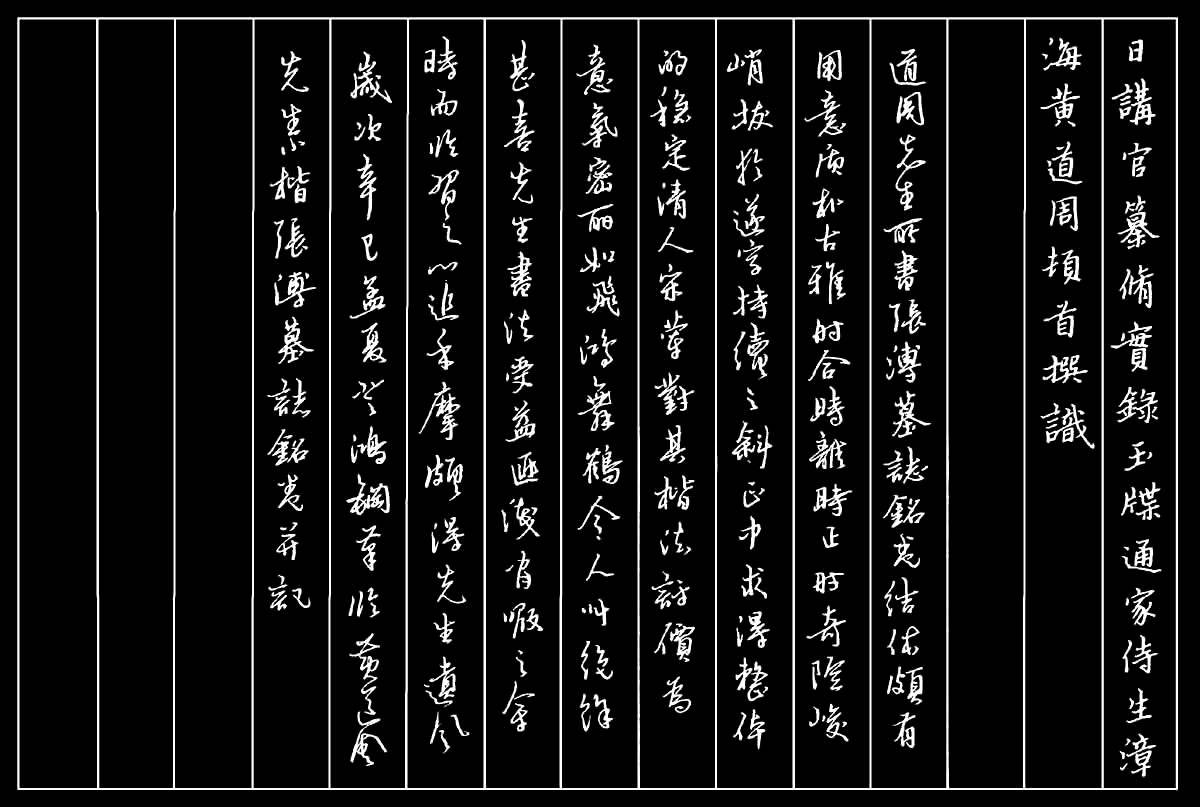 日講官纂脩實錄玉牒通家侍生漳
海黃道周頓首撰識
道周先生所書張溥墓誌銘卷結体頗有
用意质朴古雅时合時離時正时奇险峻
峭拔於遂字持續之斜正中求得整体
的穩定清人宋犖對其楷法評價為
意氣密丽如飛鴻舞鶴令人叫絕余
甚喜先生書法受益匪淺有暇之余
時而临習之以追手摩頗得先生遺风
歲次辛巳孟夏鴻鋼筆临黄道周
先生楷張溥墓誌銘卷并記